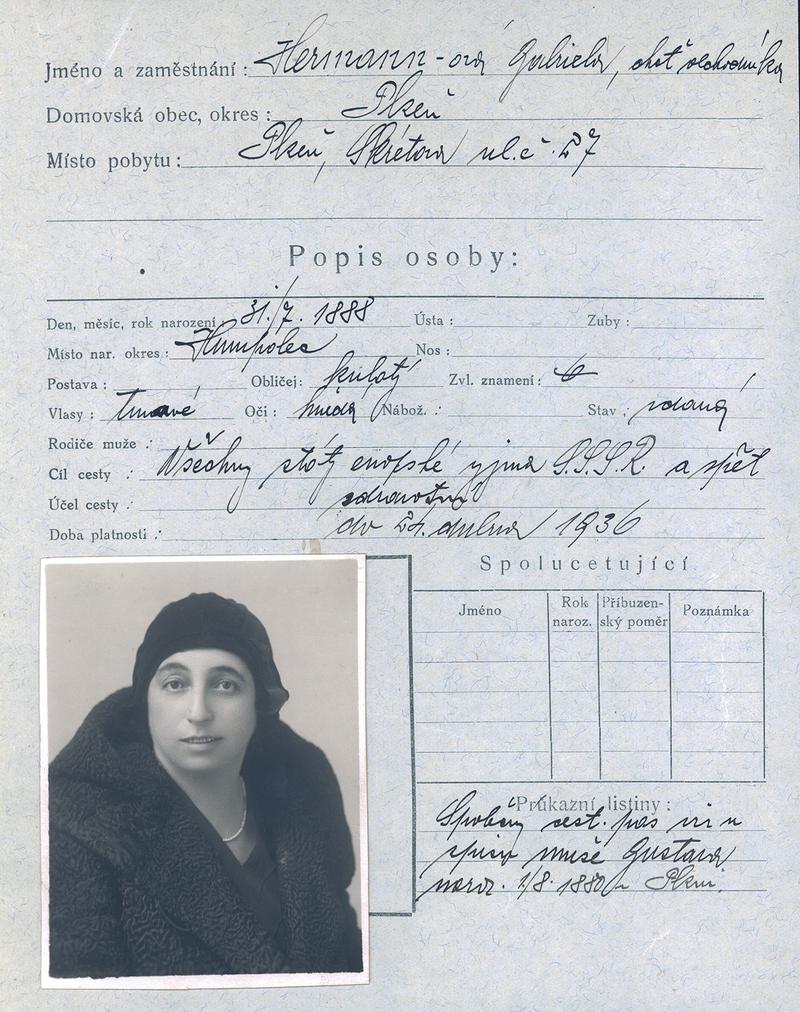 Jméno a zaměstnání : Hermann-ová Gabriela, choť obchodníka
Domovská obec, okres : Plzeň
Místo pobytu : Plzeň, Skrétova ul. č. 27
Popis osoby:
Den, měsíc, rok narození : 31./7. 1888 Ústa : Zuby :
Místo nar. okres : Humpolec Nos :
Postava : Obličej : kulatý Zvl. znamení :
Vlasy : tmavé Oči : hnědé Nábož. : Stav : vdaná
Rodiče muže :
Cíl cesty : Všechny státy evropské vyjma S.S.S.R. a zpět
Účel cesty : zdravotní
Doba platnosti : do 24. dubna 1936
Spolucetující
Jméno Rok naroz. Příbuzenský poměr Poznámka
Průkazní listiny :
cest. pas
spisu muže Gustava
naroz. 1/8. 1880 v Plzni.